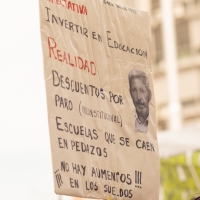 Invertir en Educación
Realidad
Descuentos por
paro (institucional)
Escuelas que se caen
en pedazos
No hay aumentos!!!
¡¡¡ en los sueldos